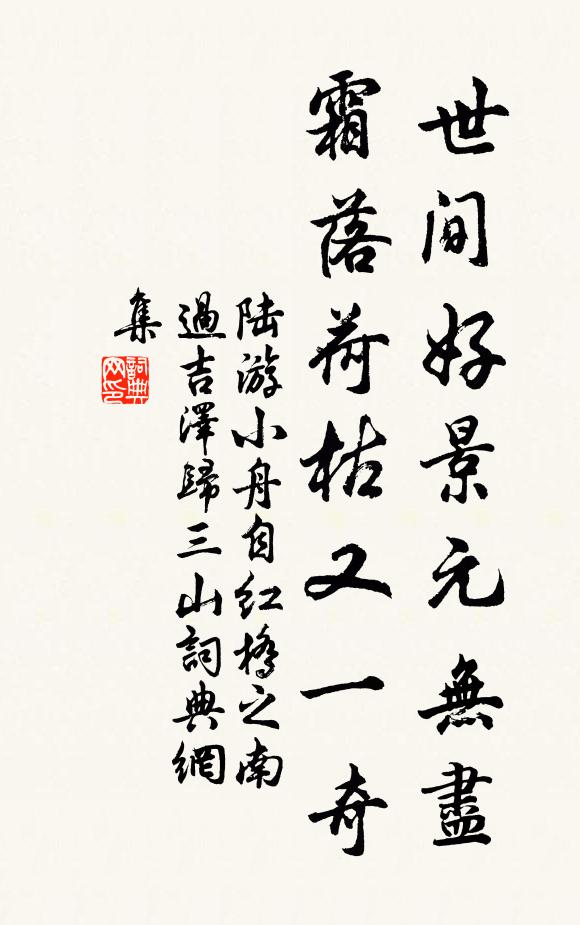 世間好景元無盡
霜落荷枯又一奇
陆游小舟自红橋之南
過吉澤歸三山詞典網
集
詞典网印